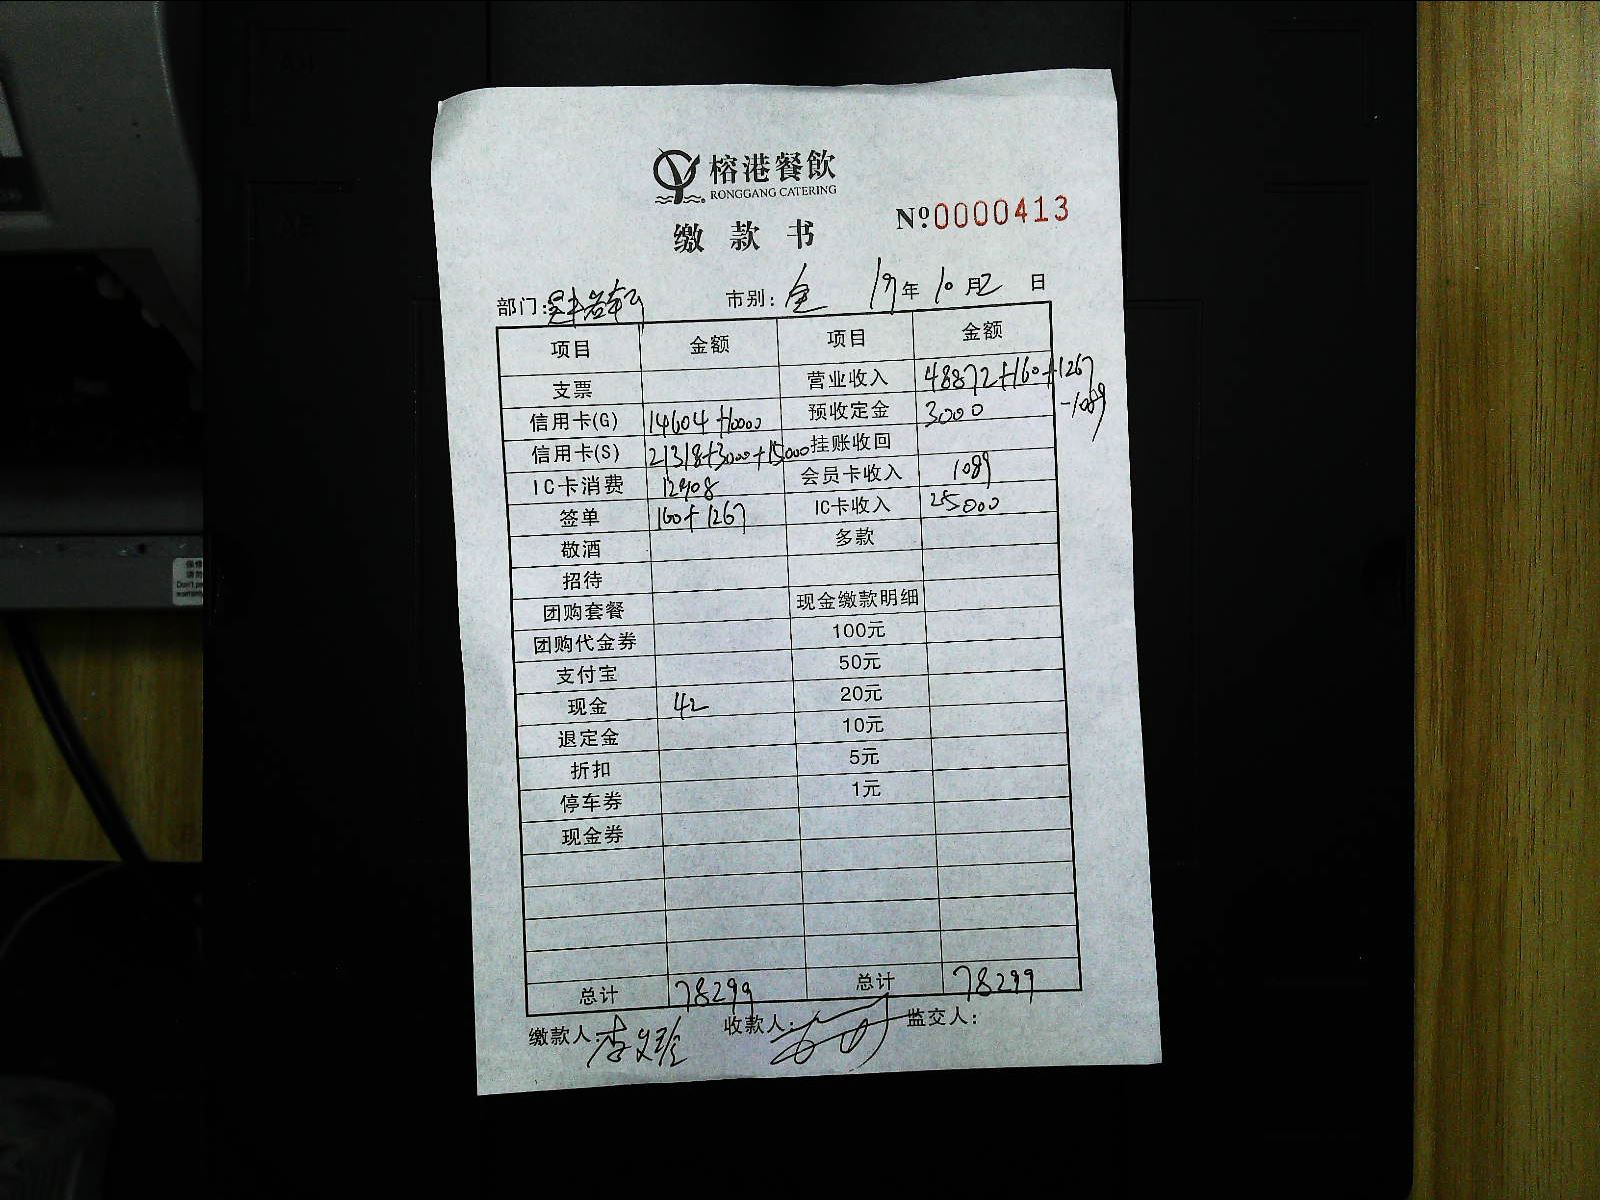 榕港餐飲
RONGGANG CATERING
缴款书
Nº.0000413
部门: 市别:全 19年10月2日
项目 金额 项目 金额
支票 营业收入 48872+160+1267
-1089
信用卡(G) 14604+10000 预收定金 3000
信用卡(S) 21318+3000+15000 挂账收回
IC卡消费 12908 会员卡收入 1089
签单 160+1267 IC卡收入 25000
敬酒 多款
招待
团购套餐 现金缴款明细
团购代金券 100元
支付宝 50元
现金 42 20元
退定金 10元
折扣 5元
停车券 1元
现金券
总计 78299 总计 78299
缴款人: 李 收款人: 监交人: